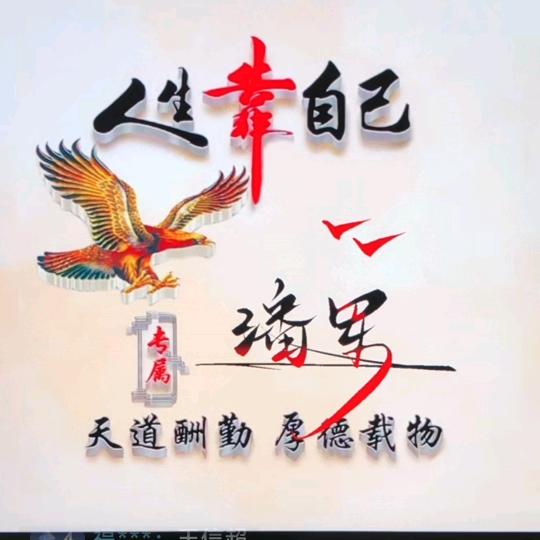 人生靠自己
专属
潘军
天道酬勤 厚德载物